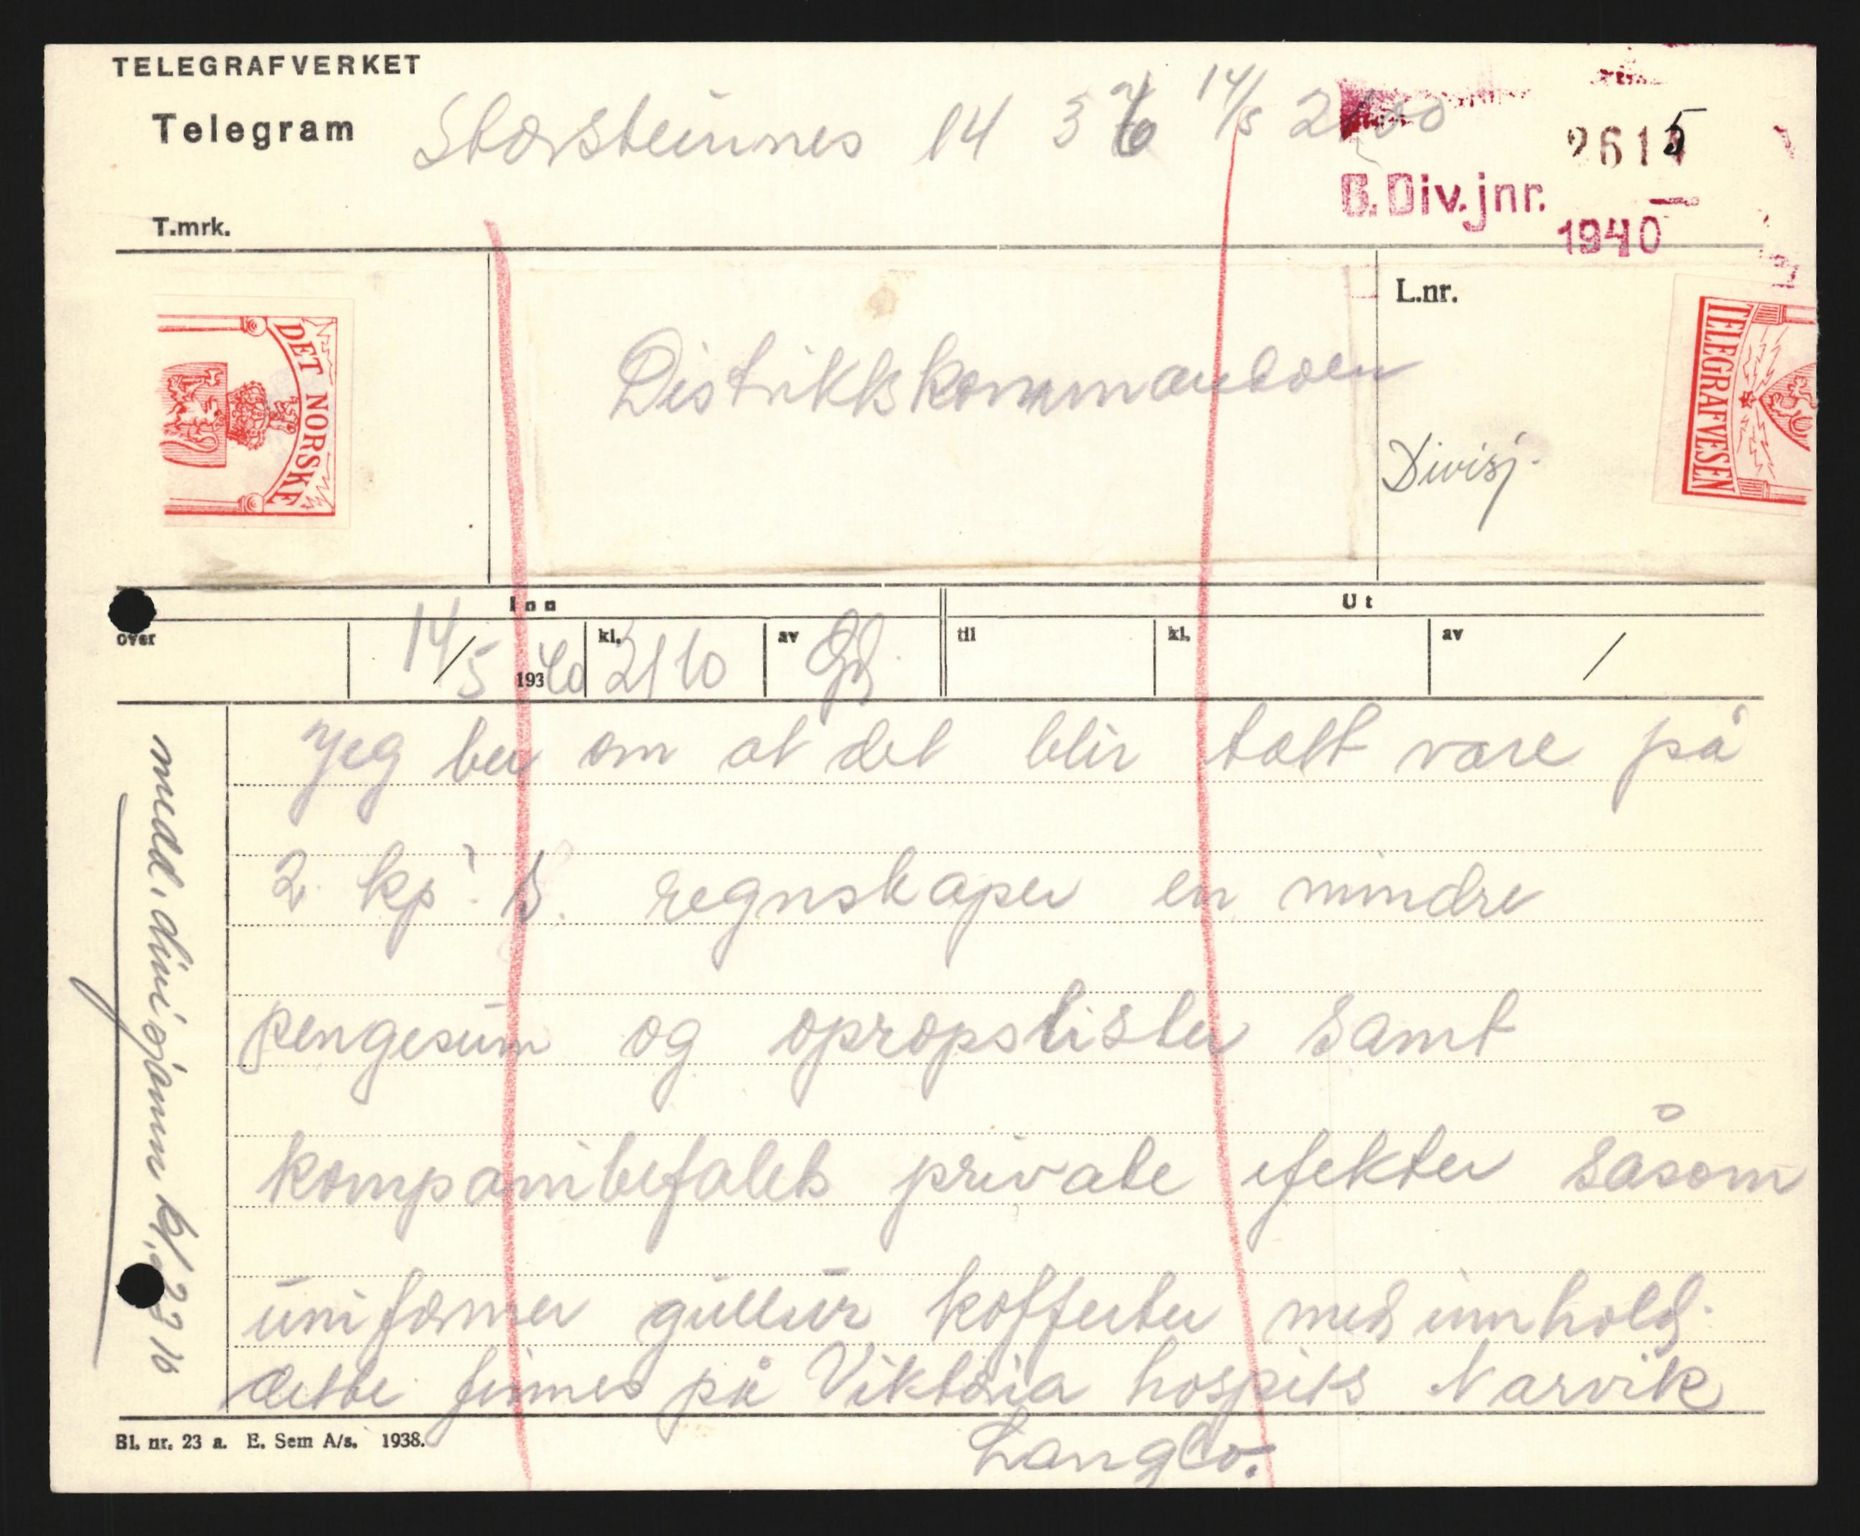 TELEGRAFVERKET
Telegram
Storsteinnes 14 36 14/5 2100
2615
6. Div. jnr.
1940
T.mrk.
DET NORSKE
L.nr.
TELEGRAFVESEN
Distriktskommandoen
Divisj.
Inn
Ut
over
14/5 1940
kl. 2110
av
til
kl.
av
/
Jeg ber om at det blir tatt vare på
2 kp's. regnskaper en mindre
pengesum og opropslister samt
kompanibefalets private efekter såsom
uniformer gullur kofferter med innhold.
dette finnes på Viktoria hospits Narvik
Langlo.
medd. divisjonen kl. 2310
Bl. nr. 23 a. E. Sem A/s. 1938.